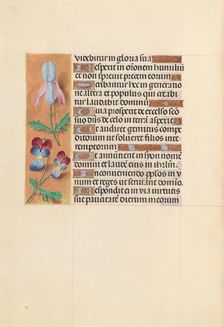 videbitur in gloria sua
Respexit in orationem humilium
et non sprevit precem eorum
Scribantur hec in generatione
altera et populus qui creabitur
laudabit dominum
Quia prospexit de excelso sancto
suo dominus de celo in terram aspexit
Ut audiret gemitus compeditorum
ut solveret filios interemptorum
Ut annuntient in syon nomen
domini et laudem eius in iherusalem
In conveniendo populos in unum
et reges ut serviant domino
Respondit ei in via virtutis
sue paucitatem dierum meorum